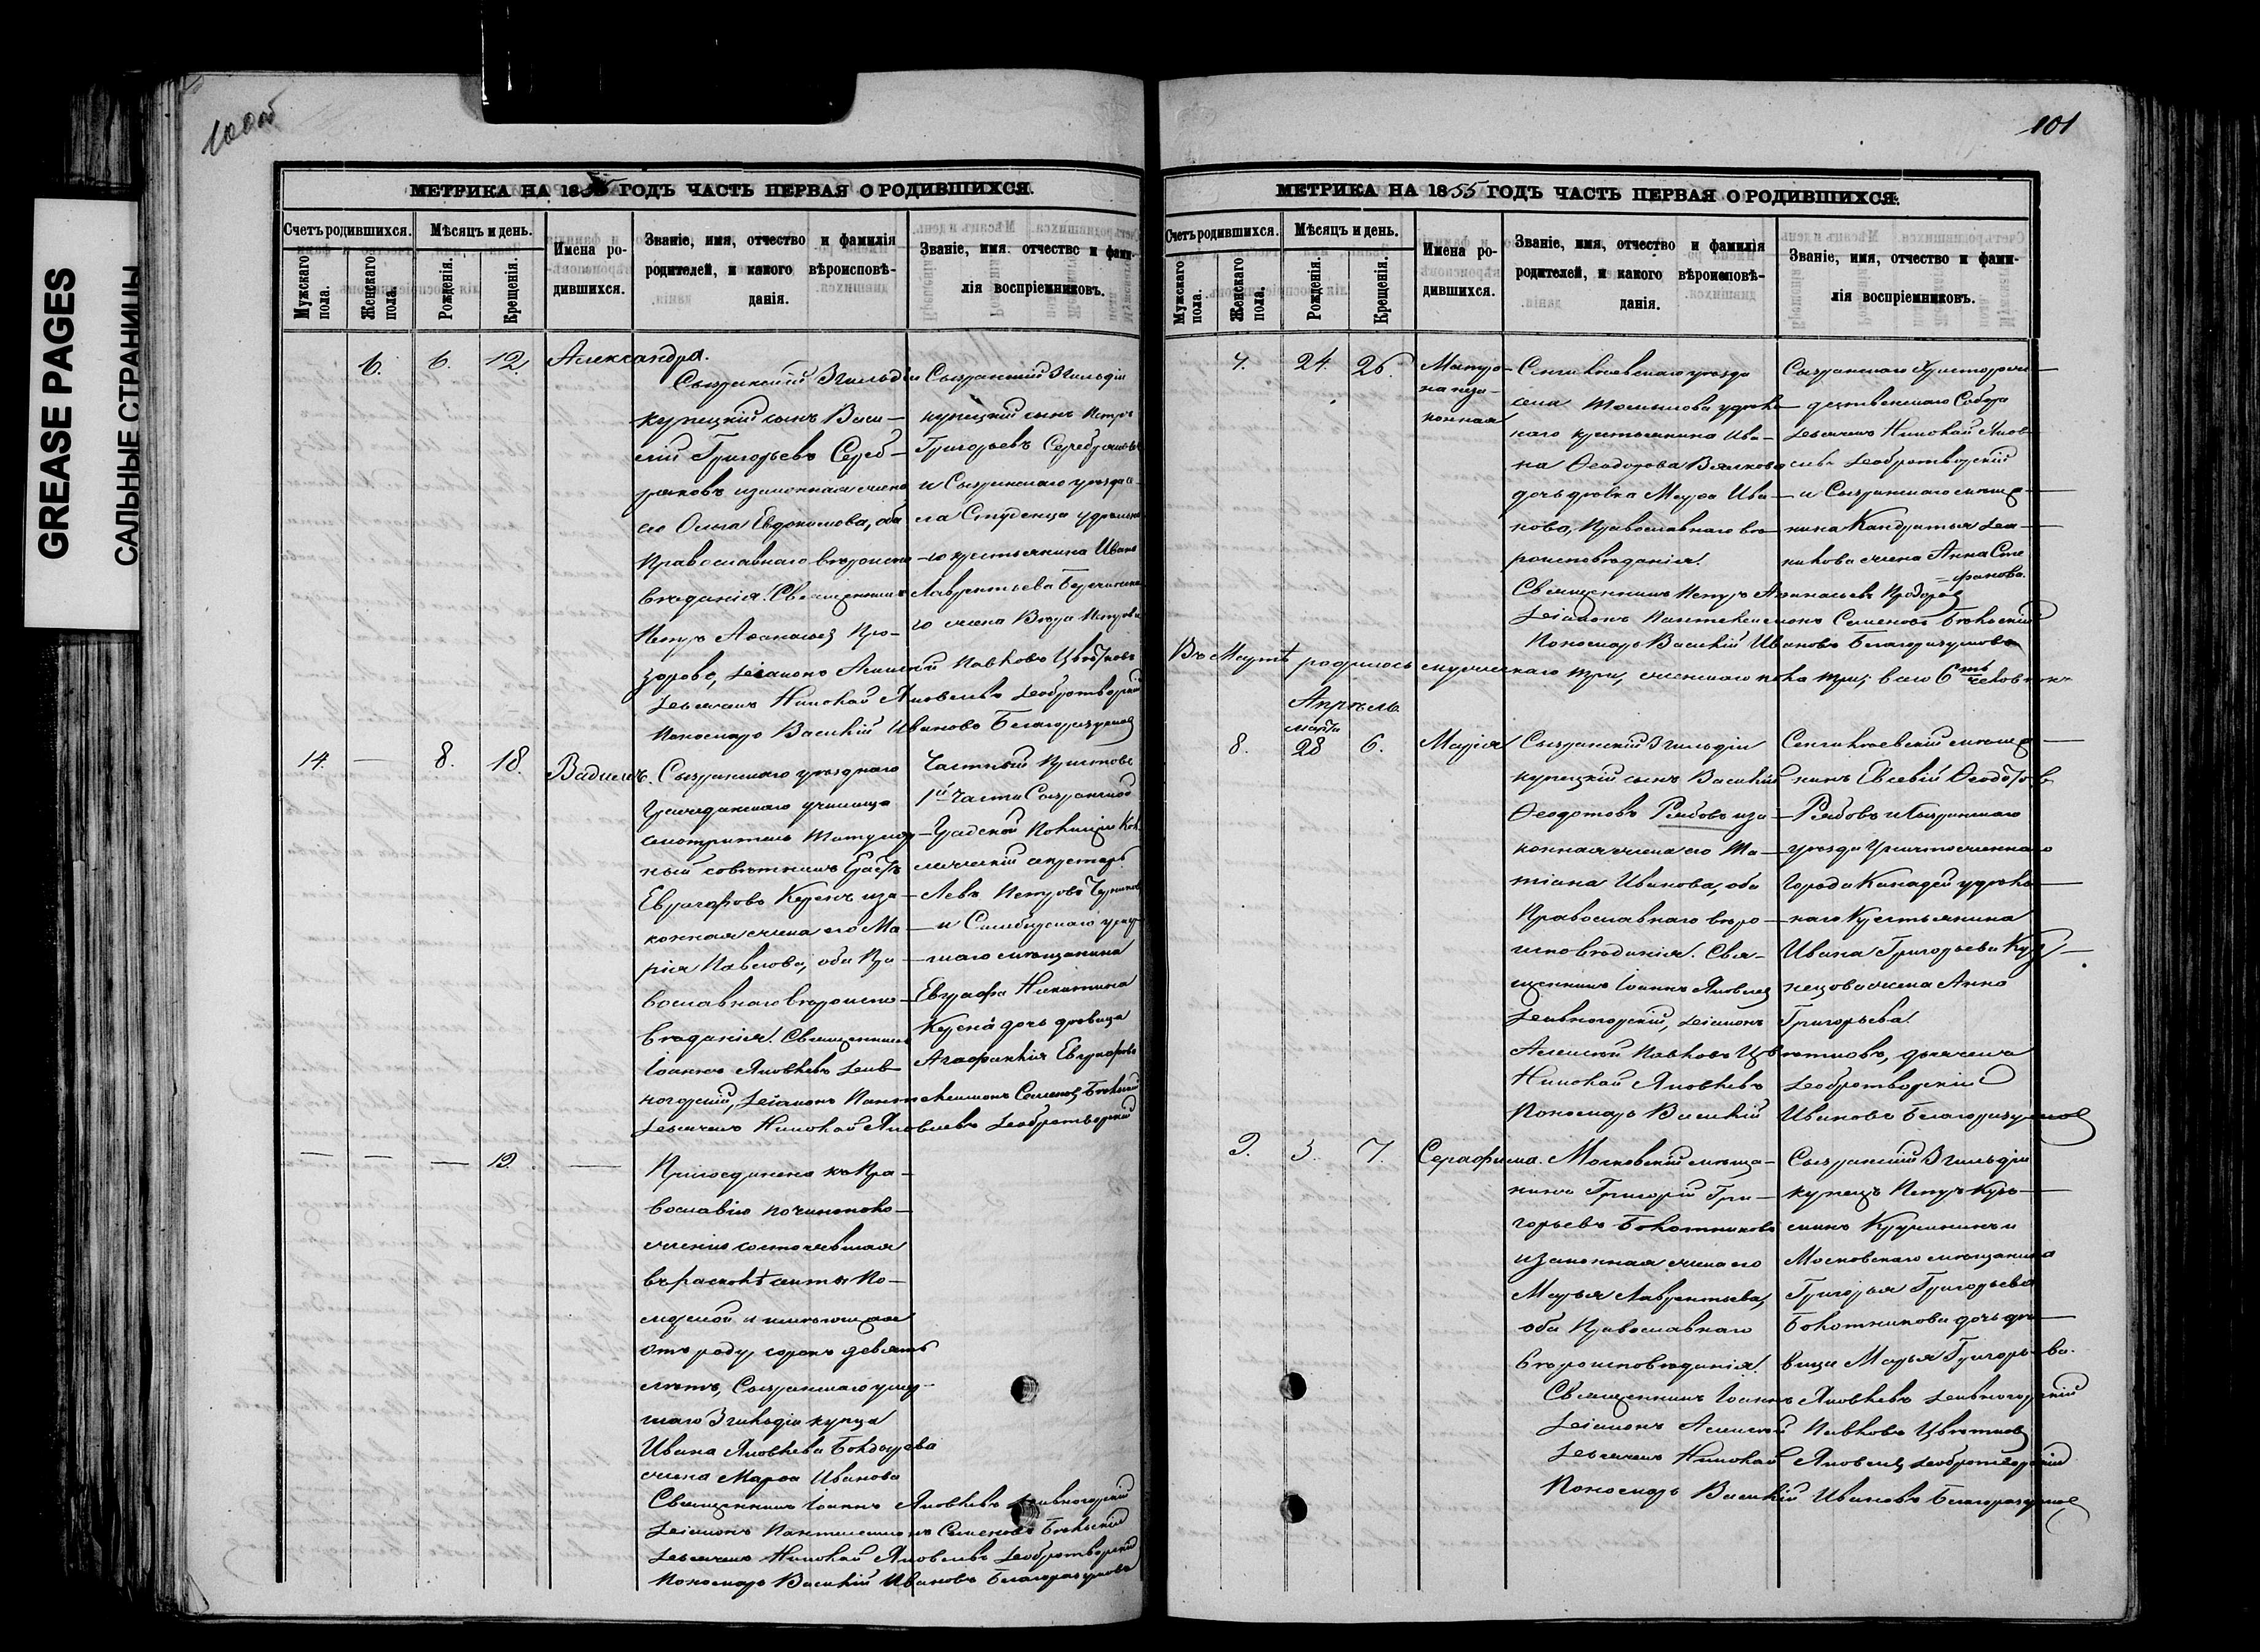 GREASE PAGES
САЛЬНЫЕ СТРАНИЦЫ
100об
МЕТРИКА НА 1855 ГОДЪ ЧАСТЬ ПЕРВАЯ О РОДИВШИХСЯ.
Счетъ родившихся.
Мѣсяцъ и день.
Имена ро-
дившихся.
Званіе, имя, отчество и фамилія
родителей, и какого вѣроисповѣ-
данія.
Званіе, имя, отчество и фами-
лія воспріемниковъ.
Мужскаго пола.
Женскаго пола.
Рожденія.
Крещенія.
6. 6. 12. Александра.
Сызранскій 3 гильдіи
купецкій сынъ Васи-
лій Григорьевъ Сереб-
ряковъ и законная жена
его Ольга Евдокимова, оба
Православнаго вѣроиспо-
вѣданія. Священникъ
Петръ Аѳанасьевъ Про-
зоровъ, Діаконъ Алексѣй Павловъ Цвѣтковъ
Дьячекъ Николай Яковлевъ Добротворскій
Пономарь Василій Ивановъ Благоразумовъ
Сызранскій 3 гильдіи
купецкій сынъ Петръ
Григорьевъ Серебряковъ
и Сызранскаго уѣзда се-
ла Студенца удѣльна-
го крестьянина Ивана
Лаврентьева
го жена Вѣра Петрова
14. — 8. 18. Вадимъ.
Сызранскаго уѣзднаго
Гражданскаго училища
смотритель Титуляр-
ный совѣтникъ Ерастъ
Евграфовъ Керенъ и за-
конная жена его Ма-
рія Павлова, оба Пра-
вославнаго вѣроиспо-
вѣданія. Священникъ
Іоаннъ Яковлевъ Дивно-
ногорскій, Діаконъ Пантелеимонъ Семеновъ Бѣльскій
Дьячекъ Николай Яковлевъ Добротворскій
Частный Приставъ
1й части Сызранской
Градской Полиціи Кол-
лежскій секретарь
Левъ Петровъ
и Симбирскаго
мѣщанина
Евграфа Никитина
Керена дочь дѣвица
Евграфова
— — — 19. —
Присоединена къ Пра-
вославію по чиноположенію
состоявшая
въ расколѣ секты По-
морской и имѣющая
отъ роду сорокъ девять
лѣтъ, Сызранскаго умер-
шаго 3 гильдіи купца
Ивана Яковлева
жена Марѳа Иванова
Священникъ Іоаннъ Яковлевъ Дивногорскій
Діаконъ Пантелеимонъ Семеновъ Бѣльскій
Дьячекъ Николай Яковлевъ Добротворскій
Пономарь Василій Ивановъ Благоразумовъ
101
МЕТРИКА НА 1855 ГОДЪ ЧАСТЬ ПЕРВАЯ О РОДИВШИХСЯ.
Счетъ родившихся.
Мѣсяцъ и день.
Имена ро-
дившихся.
Званіе, имя, отчество и фамилія
родителей, и какого вѣроисповѣ-
данія.
Званіе, имя, отчество и фами-
лія воспріемниковъ.
Мужскаго пола.
Женскаго пола.
Рожденія.
Крещенія.
7. 24. 26.
Матро-
на неза-
конная
Сенгилѣевскаго уѣзда
села удѣль-
наго крестьянина Ива-
на Ѳеодорова
дочь дѣвка Марѳа Ива-
нова, Православнаго вѣ-
роисповѣданія.
Священникъ Петръ Аѳанасьевъ Прозоровъ
Діаконъ Пантелеимонъ Семеновъ Бѣльскій
Пономарь Василій Ивановъ Благоразумовъ
Сызранскаго Христорож-
дественскаго Собора
дьячекъ Николай Яков-
левъ Добротворскій
и Сызранскаго мѣща-
нина Кандратья
жена Анна Сте-
фанова.
Въ Мартѣ родилось мужескаго три, женскаго пола три; всего 6ть человѣкъ
Апрѣль
8. Марта 28 6. Марія
Сызранскій 3 гильдіи
купецкій сынъ Василій
Ѳеодотовъ Рябовъ и за-
конная жена его Та-
тіана Иванова, оба
Православнаго вѣро-
исповѣданія. Свя-
щенникъ Іоаннъ Яковлевъ
Дивногорскій, Діаконъ
Алексѣй Павловъ Цвѣтковъ, дьячекъ
Николай Яковлевъ Добротворскій
Пономарь Василій Ивановъ Благоразумовъ
Сенгилѣевскій мѣща-
нинъ Евсевій Ѳеодотовъ
Рябовъ и Сызранскаго
уѣзда Уничтоженнаго
Города Канадей удѣль-
наго Крестьянина
Ивана Григорьева Куз-
нецова жена Анна
Григорьева.
9. 3. 7. Серафима.
Московскій мѣща-
нинъ Григорій Гри-
горьевъ Болотниковъ
и законная жена его
Марья Лаврентьева,
оба Православнаго
вѣроисповѣданія.
Священникъ Іоаннъ Яковлевъ Дивногорскій
Діаконъ Алексѣй Павловъ Цвѣтковъ
Дьячекъ Николай Яковлевъ Добротворскій
Пономарь Василій Ивановъ Благоразумовъ
Сызранскій 3 гильдіи
купецъ Петръ Кузь-
минъ и
Московскаго мѣщанина
Григорья Григорьева
Болотникова дочь дѣ-
вица Марья Григорьева.